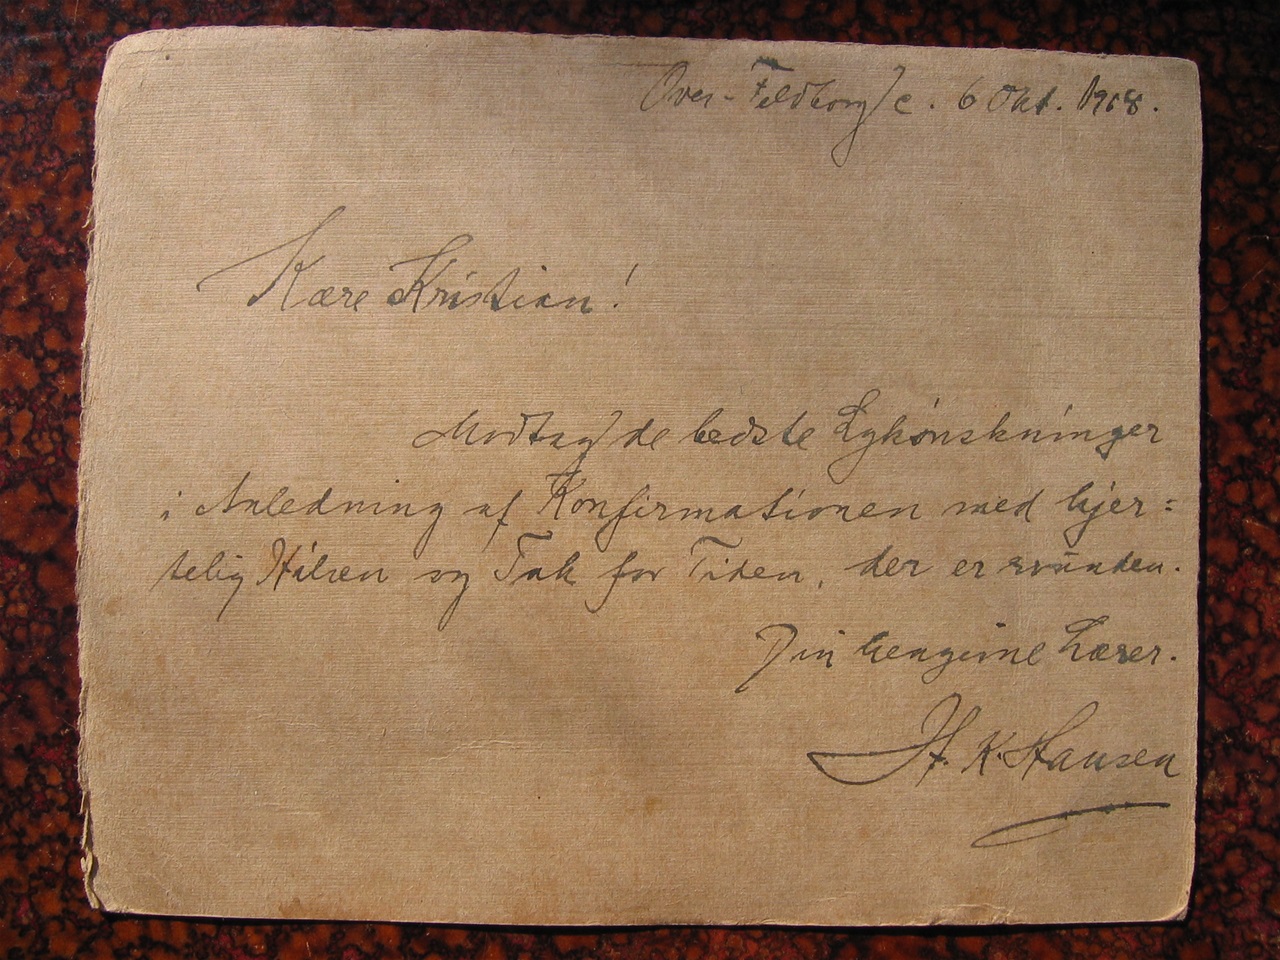 Over-Feldborg/c. 6 Okt. 1918.
Kære Kristian!
Modtag de bedste Lykónskninger
i Anledning af Konfirmationen med hjer=
telig Hilsen og Tak for Tiden, der er svŭnden.
Din hengivne Lærer.
H. K. Hansen